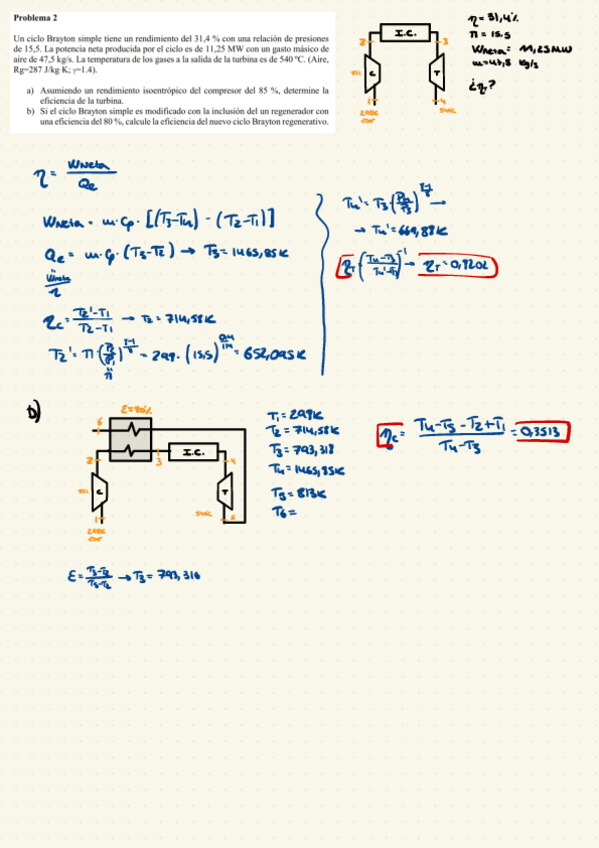 Problema 2
Un ciclo Brayton simple tiene un rendimiento del 31,4 % con una relación de presiones
de 15,5. La potencia neta producida por el ciclo es de 11,25 MW con un gasto másico de
aire de 47,5 kg/s. La temperatura de los gases a la salida de la turbina es de 540 ºC. (Aire,
Rg=287 J/kg·K; γ=1.4).
a) Asumiendo un rendimiento isoentrópico del compresor del 85 %, determine la
eficiencia de la turbina.
b) Si el ciclo Brayton simple es modificado con la inclusión del un regenerador con
una eficiencia del 80 %, calcule la eficiencia del nuevo ciclo Brayton regenerativo.
I.C.
2
3
C
T
1
4
η = 31,4%
π = 15.5
Wneta = 11,25MW
m = 47,5 kg/s
¿ηT?
η = Wneta / Qe
Wneta = m·Cp·[(T3-T4) - (T2-T1)]
Qe = m·Cp·(T3-T2) → T3 = 1465,85K
Wneta / η
ηc = T2'-T1 / T2-T1 → T2 = 714,58K
= 652,095K
→ T4' = 669,88K
b)
ε=80%
6
2
3
I.C.
4
C
T
1
T1 = 298K
T2 = 714,58K
T3 = 793,318
T4 = 1465,85K
T5 = 813K
T6 =
ηc = T4-T5-T2+T1 / T4-T3 = 0,3513
ε = T3-T2 / T5-T2 → T3 = 793,318